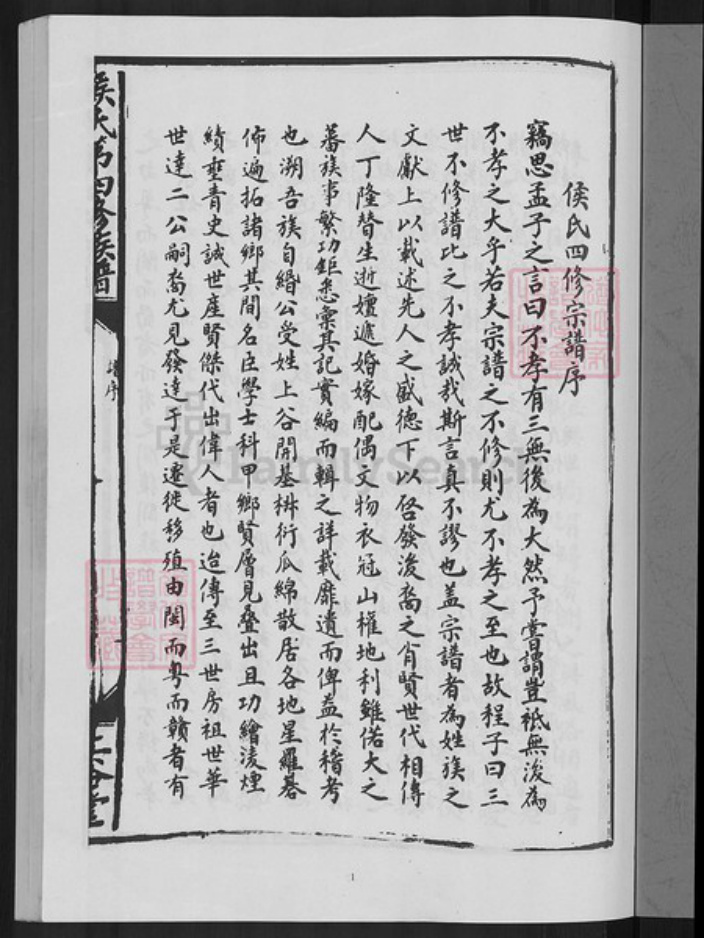 侯氏四修宗譜序
竊思孟子之言曰不孝有三無後為大然予嘗謂豈衹無後為
不孝之大乎若夫宗譜之不修則尤不孝之至也故程子曰三
世不修譜比之不孝誠哉斯言真不謬也蓋宗譜者為姓族之
文獻上以載述先人之盛德下以啓發後裔之肖賢世代相傳
人丁隆替生逝嬗遞婚嫁配偶文物衣冠山權地利雖偌大之
蕃族事繁功鉅悉彙其記實編而輯之詳載靡遺而俾益於稽考
也溯吾族自緡公受姓上谷開基枡衍瓜綿散居各地星羅碁
佈遍拓諸鄉其間名臣學士科甲鄉賢層見叠出且功繪淩煙
績垂青史誠世座賢傑代出偉人者也迨傳至三世房祖世華
世達二公嗣裔尤見發達于是遷徙移殖由閩而粵而贛者有
侯氏第四修族譜
增序
三合堂
FamilySearch
1